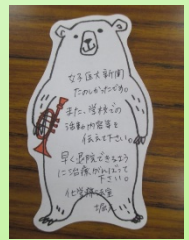 女子医大新聞
たのしかったです。
また、学校での
活動内容等を
伝えて下さい。
早く退院できるよう
に治療がんばって
下さい。
化学